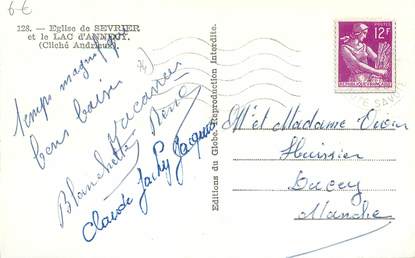 6€
128. — Eglise de SEVRIER
et le LAC d'ANNECY.
(Cliché Andrieux)
temps magnifique
bons baisers
Vacances
Blanchette René
Claude Jacky Jacques
Editions du Globe. Reproduction Interdite.
POSTES
12F
M et Madame
Huissier
Ducey
Manche